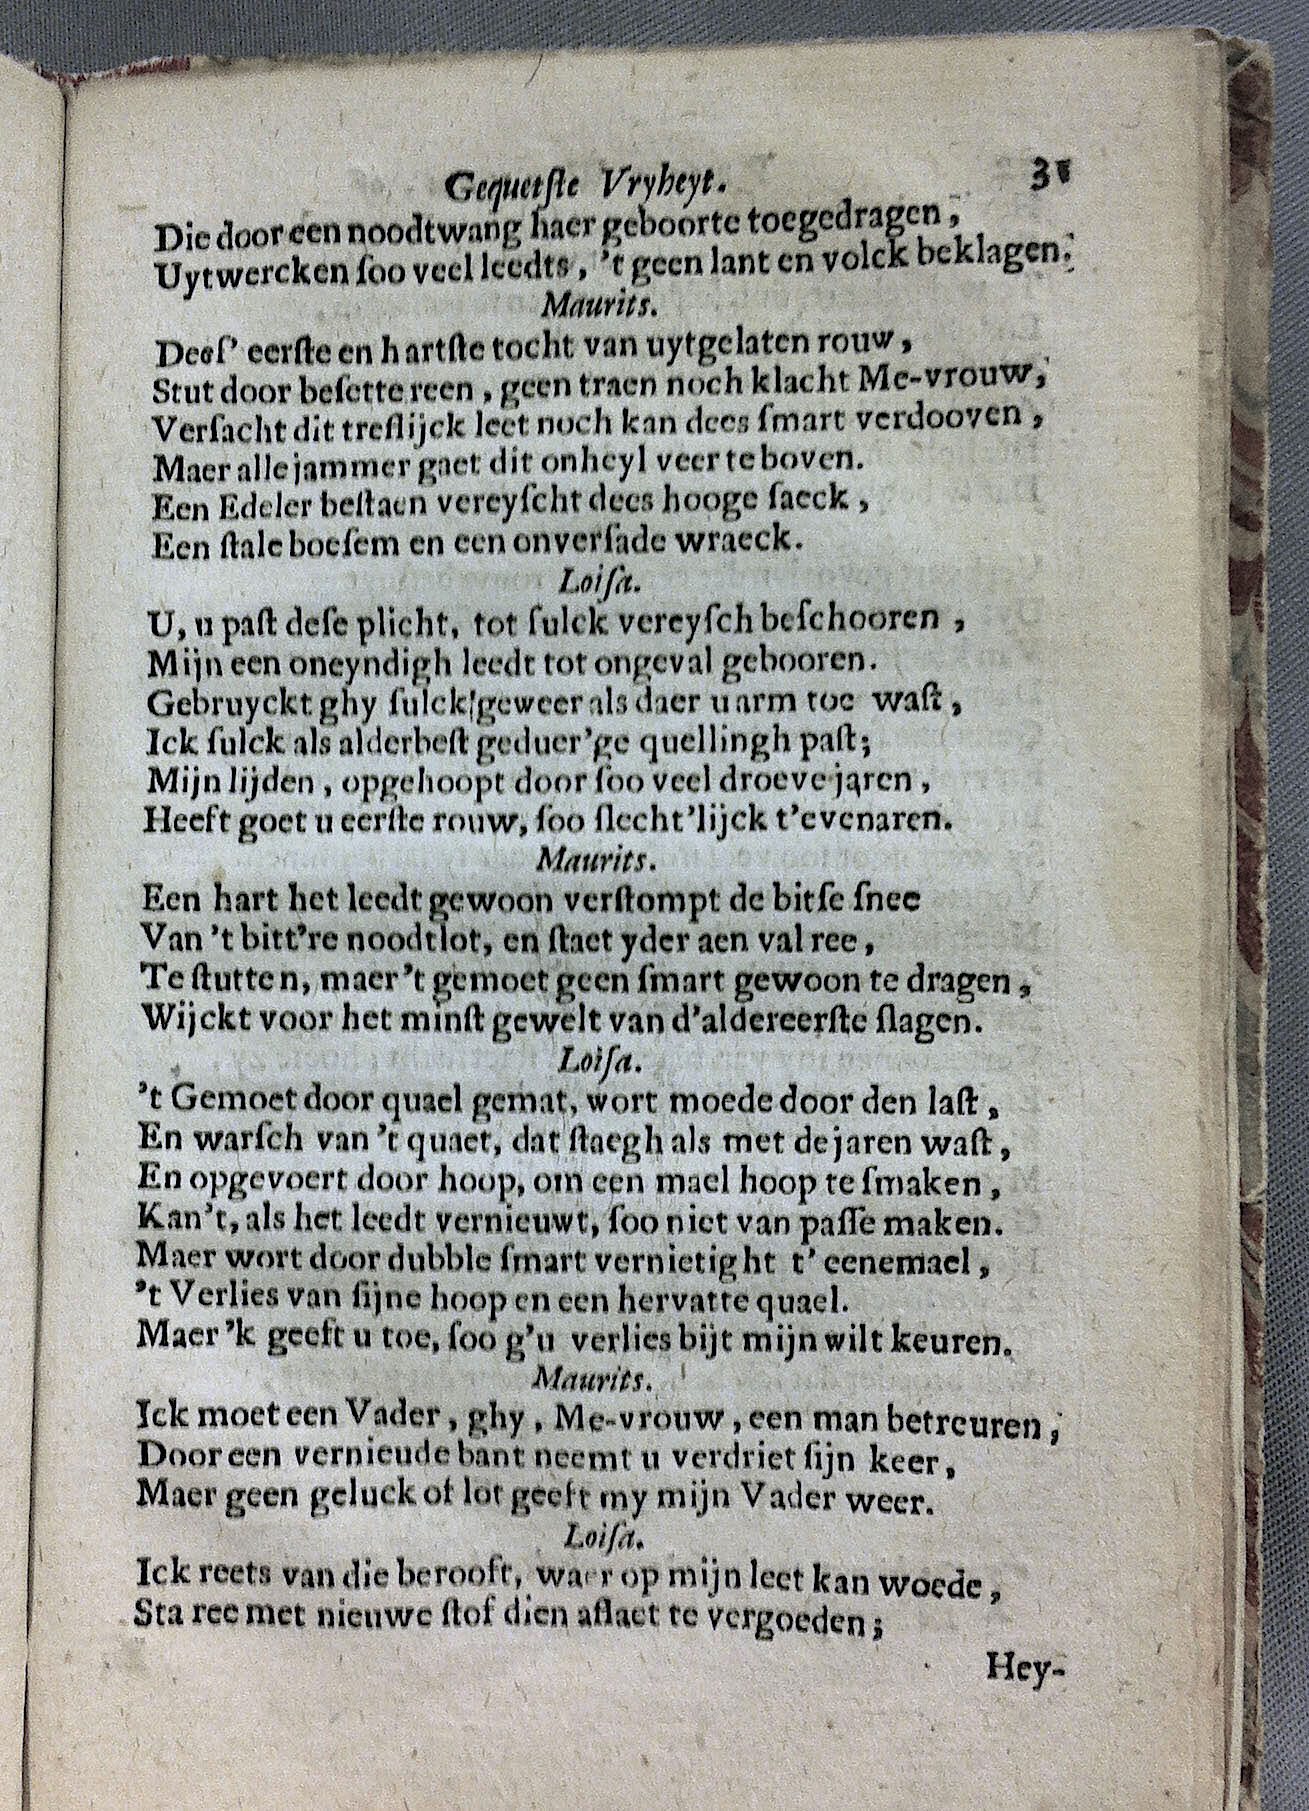 Gequetſte Vryheyt. 31
Die door een noodtwang haer geboorte toegedragen,
Uytwercken ſoo veel leedts, 't geen lant en volck beklagen.
Maurits.
Deeſ' eerſte en hartſte tocht van uytgelaten rouw,
Stut door beſette reen, geen traen noch klacht Me-vrouw,
Verſacht dit treflijck leet noch kan dees ſmart verdooven,
Maer alle jammer gaet dit onheyl veer te boven.
Een Edeler beſtaen vereyſcht dees hooge ſaeck,
Een ſtale boeſem en een onverſade wraeck.
Loiſa.
U, u paſt deſe plicht, tot ſulck vereyſch beſchooren,
Mijn een oneyndigh leedt tot ongeval gebooren.
Gebruyckt ghy ſulck geweer als daer u arm toe waſt,
Ick ſulck als alderbeſt geduer'ge quellingh paſt;
Mijn lijden, opgehoopt door ſoo veel droeve jaren,
Heeft goet u eerſte rouw, ſoo ſlecht'lijck t'evenaren.
Maurits.
Een hart het leedt gewoon verſtompt de bitſe ſnee
Van 't bitt're noodtlot, en ſtaet yder aenval ree,
Te ſtutten, maer 't gemoet geen ſmart gewoon te dragen,
Wijckt voor het minſt gewelt van d'aldereerſte ſlagen.
Loiſa.
't Gemoet door quael gemat, wort moede door den laſt,
En warſch van 't quaet, dat ſtaegh als met de jaren waſt,
En opgevoert door hoop, om een mael hoop te ſmaken,
Kan't, als het leedt vernieuwt, ſoo niet van paſſe maken.
Maer wort door dubble ſmart vernietight t' eenemael,
't Verlies van ſijne hoop en een hervatte quael.
Maer 'k geeft u toe, ſoo g'u verlies bijt mijn wilt keuren.
Maurits.
Ick moet een Vader, ghy, Me-vrouw, een man betreuren,
Door een vernieude bant neemt u verdriet ſijn keer,
Maer geen geluck of lot geeft my mijn Vader weer.
Loiſa.
Ick reets van die berooft, waer op mijn leet kan woede,
Sta ree met nieuwe ſtof dien aflaet te vergoeden;
Hey-